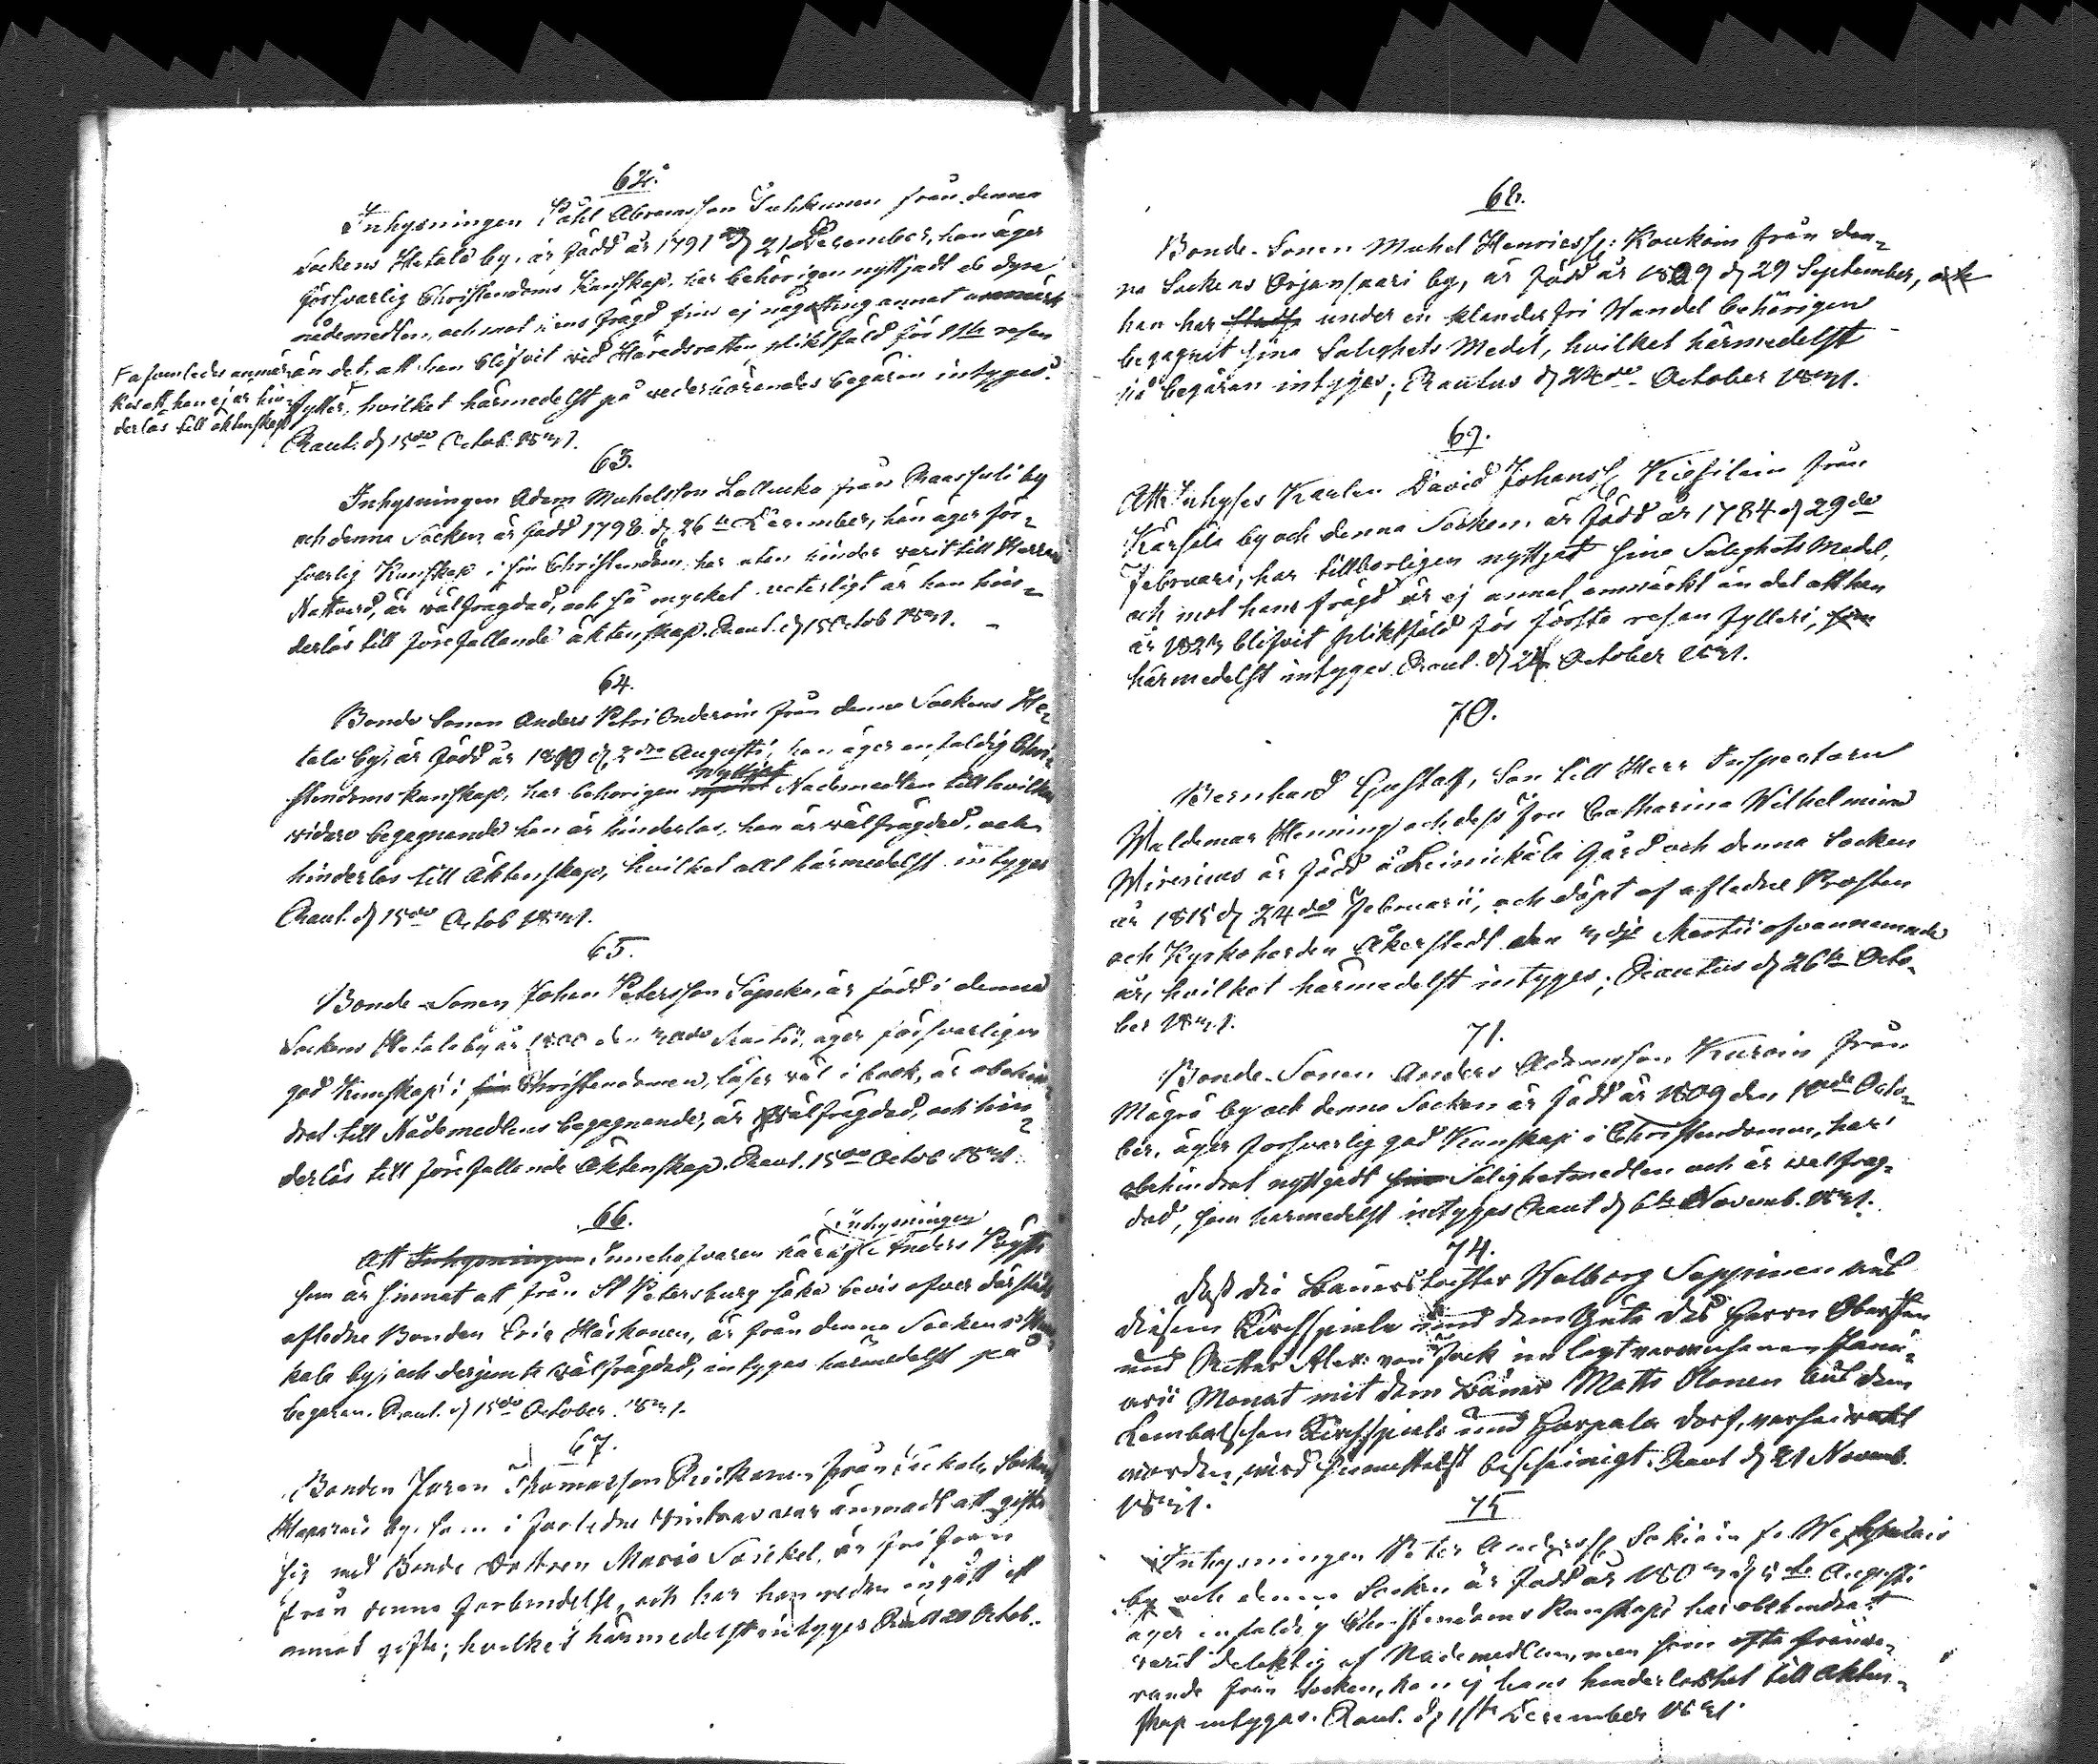 62.
Inhysningen Påhl Abramsson Suikkanen från denna
Sockens Hetala by, är född år 1791 d 21 December, han äger
försvarlig Christendoms Kunskap, har behörigen nyttjadt de dyra
nådemedlen, och mot hans fragd fins ej någonting annat anmärkt
än det, att han blifvit vid Häradsrätten pliktfäld för 1sta resan
fylleri, hvilket härmedelst på vederbörandes begäran intygas.
Faf samledes anmär-
kes att han ej är hin-
derlös till äktenskap
Raut. d 15de Octob. 1831.
63.
Inhysningen Adam Michelsson Lallukka från Raasuli by
och denna Socken, är född 1798 d. 26te December, han äger för-
svarlig Kunskap i sin Christendom, har utan hinder varit till Herrans
Nattvard, är välfragdad, och så mycket veterligt är han hin-
derlös till förefallande äktenskap. Raut. d 15 Octob 1831.
64.
Bonde Sonen Anders Petri Onderoin från denna Sockens He-
tala by, är född år 1810 d. 2dra Augusti, han äger enfaldig Chri-
stendoms kunskap, har behörigen nyttjat Nådemedlen till hvilkas
vidare begagnande han är hinderlös, han är välfrägdad, och
hinderlös till Äktenskap, hvilket allt härmedelst intygas
Raut. d 15de Octob 1831.
65.
Bonde-Sonen Johan Petersson Sopukka, är född i denna
Sockens Hetala by år 1800 den 30de Martii, äger försvarligen
god Kunskap i sin Christendomen, läser väl i bok, är obehin-
drat till Nådemedlens begagnande, är välfrägdad, och hin-
derlös till förefallande Äktenskap. Raut. 15de Octob 1831.
66.
inhysningen
Att Inhysningen Innehafvaren häraf Anders
som är sinnat att från St Petersburg söka bevis öfver därstädes
aflidne Bonden Eric Häckonen, är från denna Sockens
kala by, och desjemte välfrägdad, intygas härmedelst på
begäran. Raut. d 15de October 1831.
67.
Bonden Jöran Thomasson Ruikkanen från Sakola Sockens
Haparais by, som i förledne vintras var ämnadt att gifta
sig med Bonde Dottren Maria Suikkel, är fri från
från denna förbindelse, och har hon redan ingått ett
annat gifte; hvilket härmedelst intygas Raut 20 Octob.
68.
Bonde-Sonen Michel Henricss: Koukoin från den-
na Sockens Orjansaari by, är född år 1809 d 29 September, och
han har städs under en klanderfri Vandel behörigen
begagnit sina Salighets Medel, hvilket härmedelst
på begäran intyges; Rautus d 22de October 1831.
69.
Att Inhyses Karlen David Johanss Kiesiläin från
Kärsälä by och denna Socken, är född år 1784 d 29de
Februari, har tillbörligen nyttjat sina Salighets Medel,
och mot hans frägd är ej annat anmärkt än det att han
är 1823 blifvit pliktfäld för första resan fylleri, som
härmedelst intygas Raut. d 24 October 1831.
70.
Bernhard Gustaff, Son till Herr Inspectoren
Waldemar Henning och dess Fru Catharina Wilhelmina
Wirenius är född å Leinikälä Gård och denna Socken
år 1815 d 24de Februarii, och döpt af afledne Prosten
och Kyrkoherden Åkerstedt den 3dje Martii ofvannämnde
år, hvilket härmedelst intyges; Rautus d 26te Octo-
ber 1831.
71.
Bonde-Sonen Anders Adamsson Kuroin från
Mägrä by och denna Socken är född år 1809 den 10de Octo-
ber, äger forsvarlig god Kunskap i Christendomen, har
obehindrat nyttjadt sina Salighetmedlen och är välfrag-
dad, som härmedelst intygas Raut d 6te Novemb. 1831.
74.
Daß die Bauerstochter Walborg Seppinen aus
diesem Kirchspiele und dem Gute des Herrn Obersten
und Ritters Alex: von Fock im letztverwichenen Janu-
arii Monat mit dem Bauer Matts Olonen aus dem
Lembalschen Kirchspiele und Harpala Dorf, verheirathet
worden, wird hiemittelst bescheinigt. Raut d 21 Novemb.
1831.
75
Inhysningen Peter Anderss Sokiain fr.
by och denna Socken är född år 1803 d 5te Augusti
äger enfaldig Christendoms Kunskap, har obehindrat
varit delaktig af Nådemedlen, men som ofta frånva-
rande från Socken, kan ej hans hinderlöshet till Äkten-
skap intygas. Raut. d 1sta December 1831.